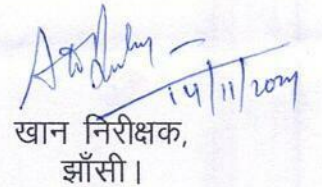 14/11/2024
खान निरीक्षक,
झाँसी।